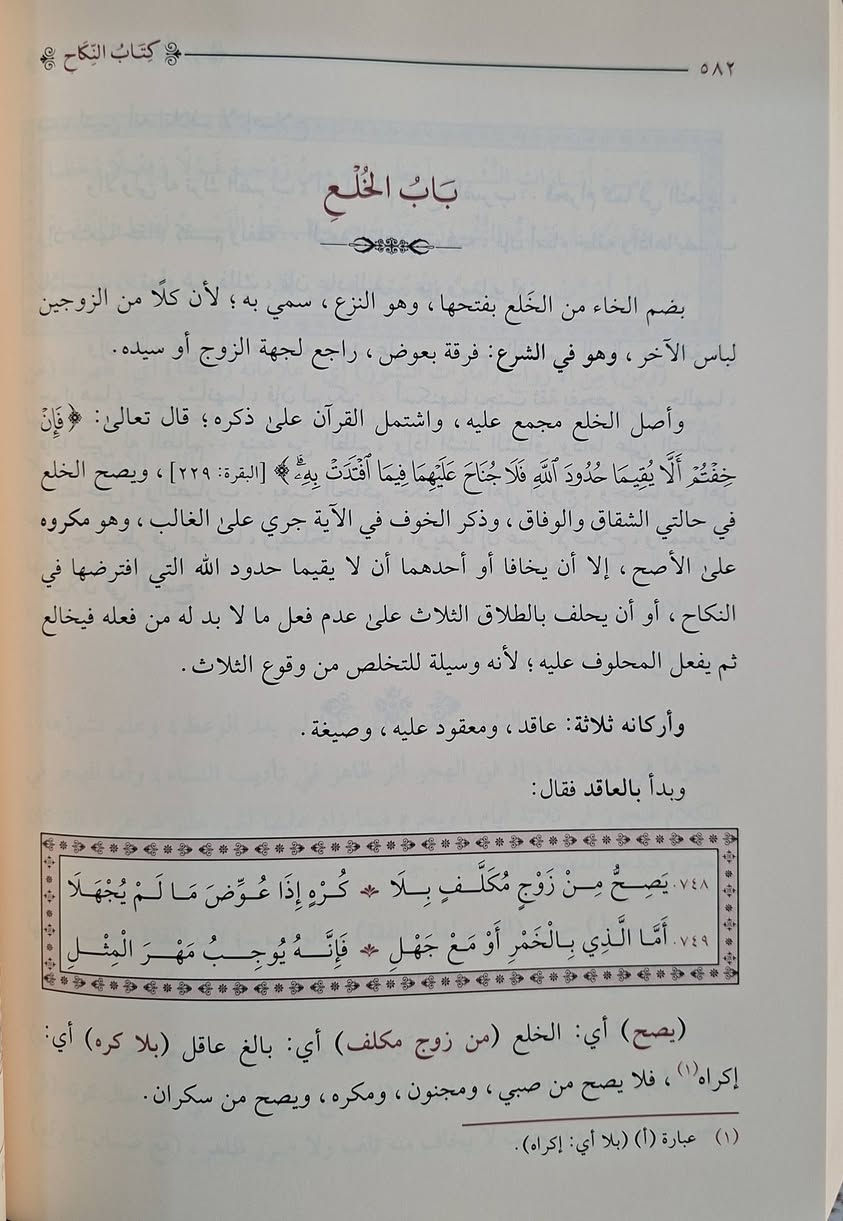 ٥٨٢ كِتَابُ النِّكَاحِ
بَابُ الخُلْعِ
بضم الخاء من الخَلع بفتحها، وهو النزع، سمي به؛ لأن كلًا من الزوجين
لباس الآخر، وهو في الشرع: فرقة بعوض، راجع لجهة الزوج أو سيده.
وأصل الخلع مجمع عليه، واشتمل القرآن علىٰ ذكره؛ قال تعالىٰ: ﴿فَإِنْ
خِفْتُمْ أَلَّا يُقِيمَا حُدُودَ ٱللَّهِ فَلَا جُنَاحَ عَلَيْهِمَا فِيمَا ٱفْتَدَتْ بِهِۦ﴾ [البقرة: ٢٢٩]، ويصح الخلع
في حالتي الشقاق والوفاق، وذكر الخوف في الآية جري علىٰ الغالب، وهو مكروه
علىٰ الأصح، إلا أن يخافا أو أحدهما أن لا يقيما حدود الله التي افترضها في
النكاح، أو أن يحلف بالطلاق الثلاث علىٰ عدم فعل ما لا بد له من فعله فيخالع
ثم يفعل المحلوف عليه؛ لأنه وسيلة للتخلص من وقوع الثلاث.
وأركانه ثلاثة: عاقد، ومعقود عليه، وصيغة.
وبدأ بالعاقد فقال:
٧٤٨. يَصِحُّ مِنْ زَوْجٍ مُكَلَّفٍ بِلَا كُرْهٍ إِذَا عُوِّضَ مَا لَمْ يُجْهَلَا
٧٤٩. أَمَّا الَّذِي بِالْخَمْرِ أَوْ مَعْ جَهْلِ فَإِنَّهُ يُوجِبُ مَهْرَ الْمِثْلِ
(يصح) أي: الخلع (من زوج مكلف) أي: بالغ عاقل (بلا كره) أي:
إكراه(١)، فلا يصح من صبي، ومجنون، ومكره، ويصح من سكران.
(١) عبارة (أ) (بلا أي: إكراه).